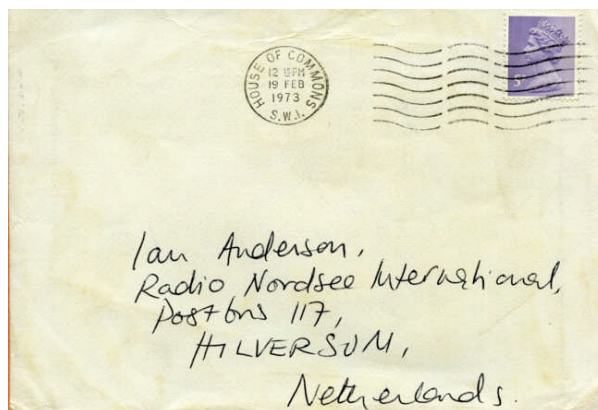 HOUSE OF COMMONS
12 15PM
19 FEB
1973
S.W.1.
5
Ian Anderson,
Radio Nordsee International,
Postbus 117,
HILVERSUM,
Netherlands.